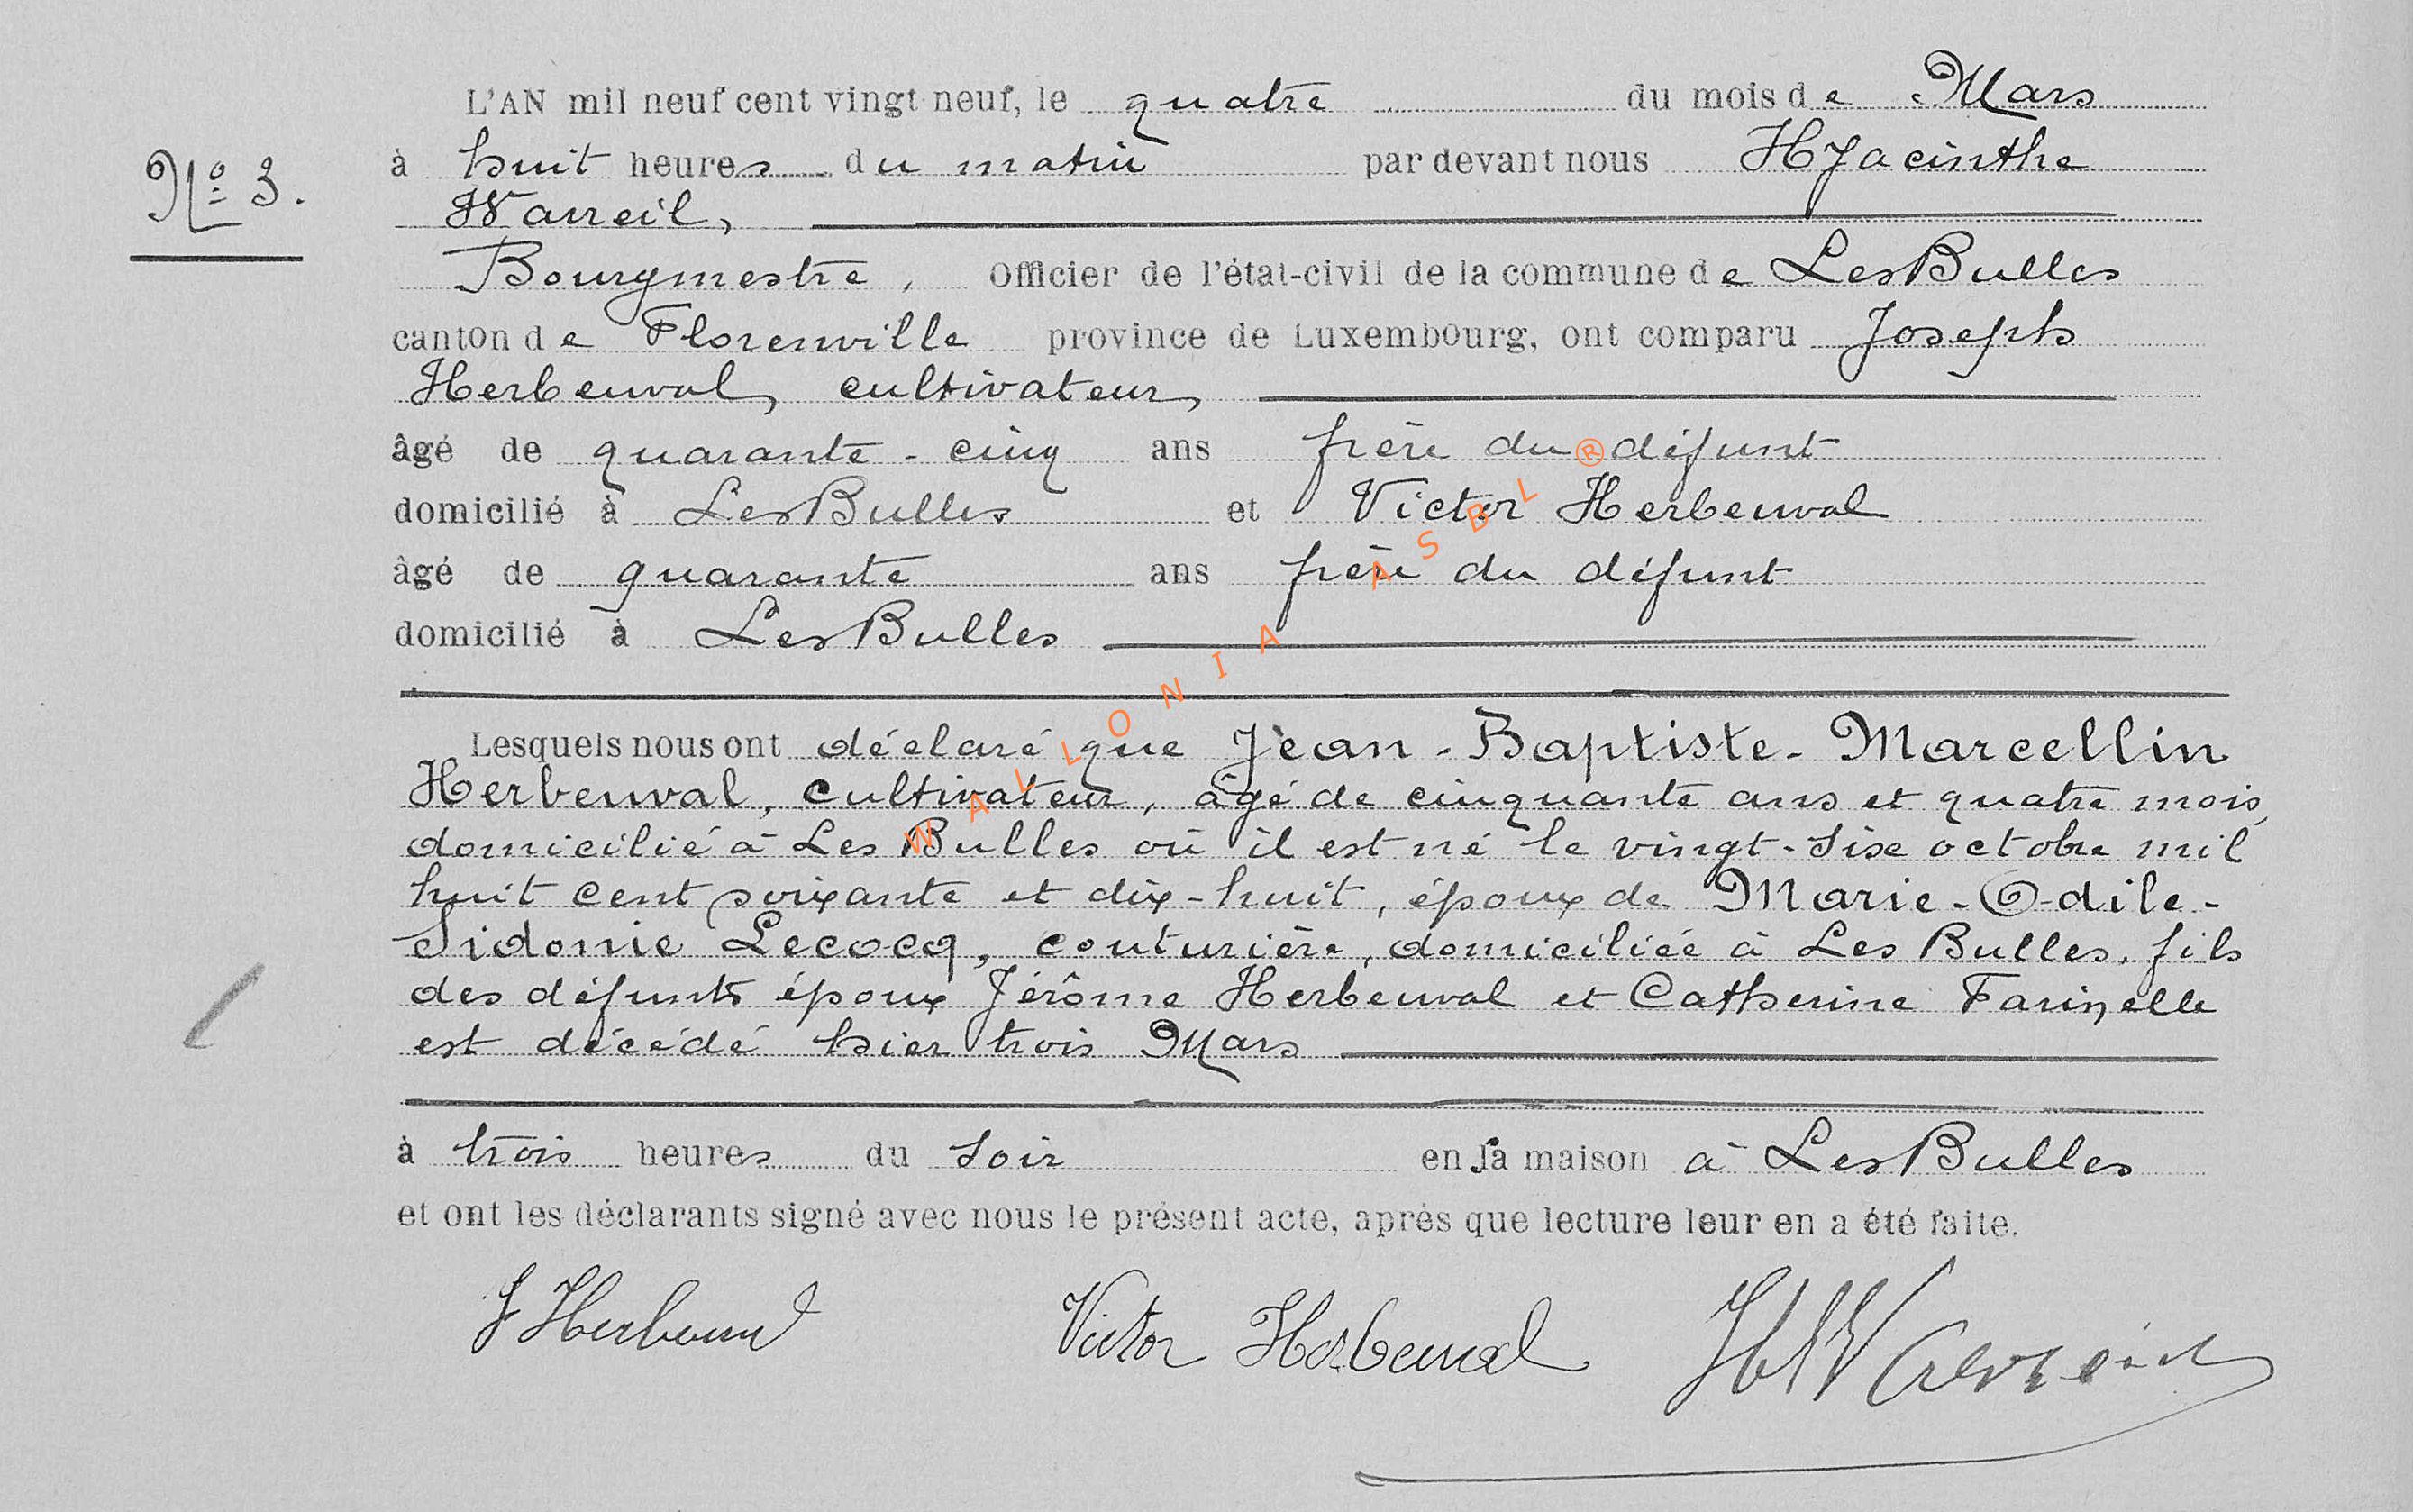 L'AN mil neuf cent vingt neuf, le quatre du mois de Mars
No 3.
à huit heures du matin par devant nous Hyacinthe
Warreil,
Bourgmestre, Officier de l'état-civil de la commune de Les Bulles
canton de Florenville province de Luxembourg, ont comparu Joseph
Herbeuval, cultivateur,
âgé de quarante-cinq ans frère du défunt
domicilié à Les Bulles et Victor Herbeuval
âgé de quarante ans frère du défunt
domicilié à Les Bulles
Lesquels nous ont déclaré que Jean-Baptiste-Marcellin
Herbeuval, cultivateur, âgé de cinquante ans et quatre mois,
domicilié à Les Bulles où il est né le vingt-six octobre mil
huit cent soixante et dix-huit, époux de Marie-Odile-
Sidonie Lecocq, couturière, domiciliée à Les Bulles, fils
des défunts époux Jérôme Herbeuval et Catherine Farinelle
est décédé hier trois Mars
à trois heures du soir en sa maison à Les Bulles
et ont les déclarants signé avec nous le présent acte, après que lecture leur en a été faite.
J Herbeuval Victor Herbeuval H Warreil
WALLONIA ASBL ®